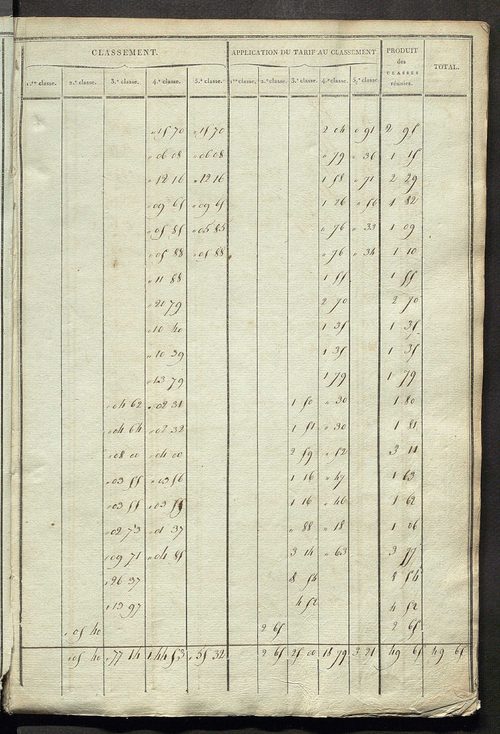 CLASSEMENT. APPLICATION DU TARIF AU CLASSEMENT. PRODUIT des CLASSES réunies. TOTAL.
1.re classe. 2.e classe. 3.e classe. 4.e classe. 5.e classe. 1.re classe. 2.e classe. 3.e classe. 4.e classe. 5.e classe.
" 15 70 " 15 70 2 04 " 91 2 95
" 06 08 " 06 08 " 79 " 36 1 15
" 12 16 " 12 16 1 58 " 71 2 29
" 09 65 " 09 65 1 26 " 56 1 82
" 05 85 " 05 85 " 76 " 33 1 09
" 05 88 " 05 88 " 76 " 34 1 10
" 11 88 1 55 1 55
" 21 79 2 70 2 70
" 10 40 1 35 1 35
" 10 39 1 35 1 35
" 13 79 1 79 1 79
" 04 62 " 02 31 1 50 " 30 1 80
" 04 64 " 02 32 1 51 " 30 1 81
" 08 00 " 04 00 2 59 " 52 3 11
" 03 55 " 03 56 1 16 " 47 1 63
" 03 55 " 03 55 1 16 " 46 1 62
" 02 73 " 01 37 " 88 " 18 1 06
" 09 71 " 04 85 3 14 " 63 3 77
" 26 37 8 54 8 54
" 13 97 4 52 4 52
" 05 40 2 65 2 65
" 05 40 " 77 14 1 44 53 " 55 32 2 65 25 00 18 79 3 21 49 65 49 65